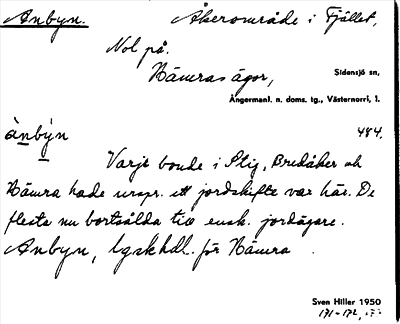 Anbyn. Åkerområde i Fjället,
Nol på.
Nämras ägor,
Sidensjö sn,
Ångermanl. n. doms. tg., Västernorrl. l.
ànbýn 484.
Varje bonde i Stig, Bredåker och
Nämra hade urspr. ett jordskifte var här. De
flesta nu bortsålda till ensk. jordägare.
Anbyn, lgskhdl. för Nämra.
Sven Hiller 1950
171-172,